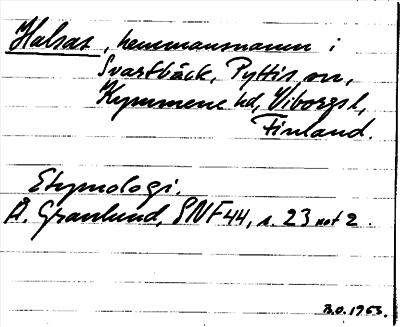 Halsas, hemmansnamn i
Svartbäck, Pyttis sn,
Kymmene hd, Viborgs l,
Finland.
Etymologi.
Å. Granlund, SNF 44, s. 23 not 2.
B.O. 1953.